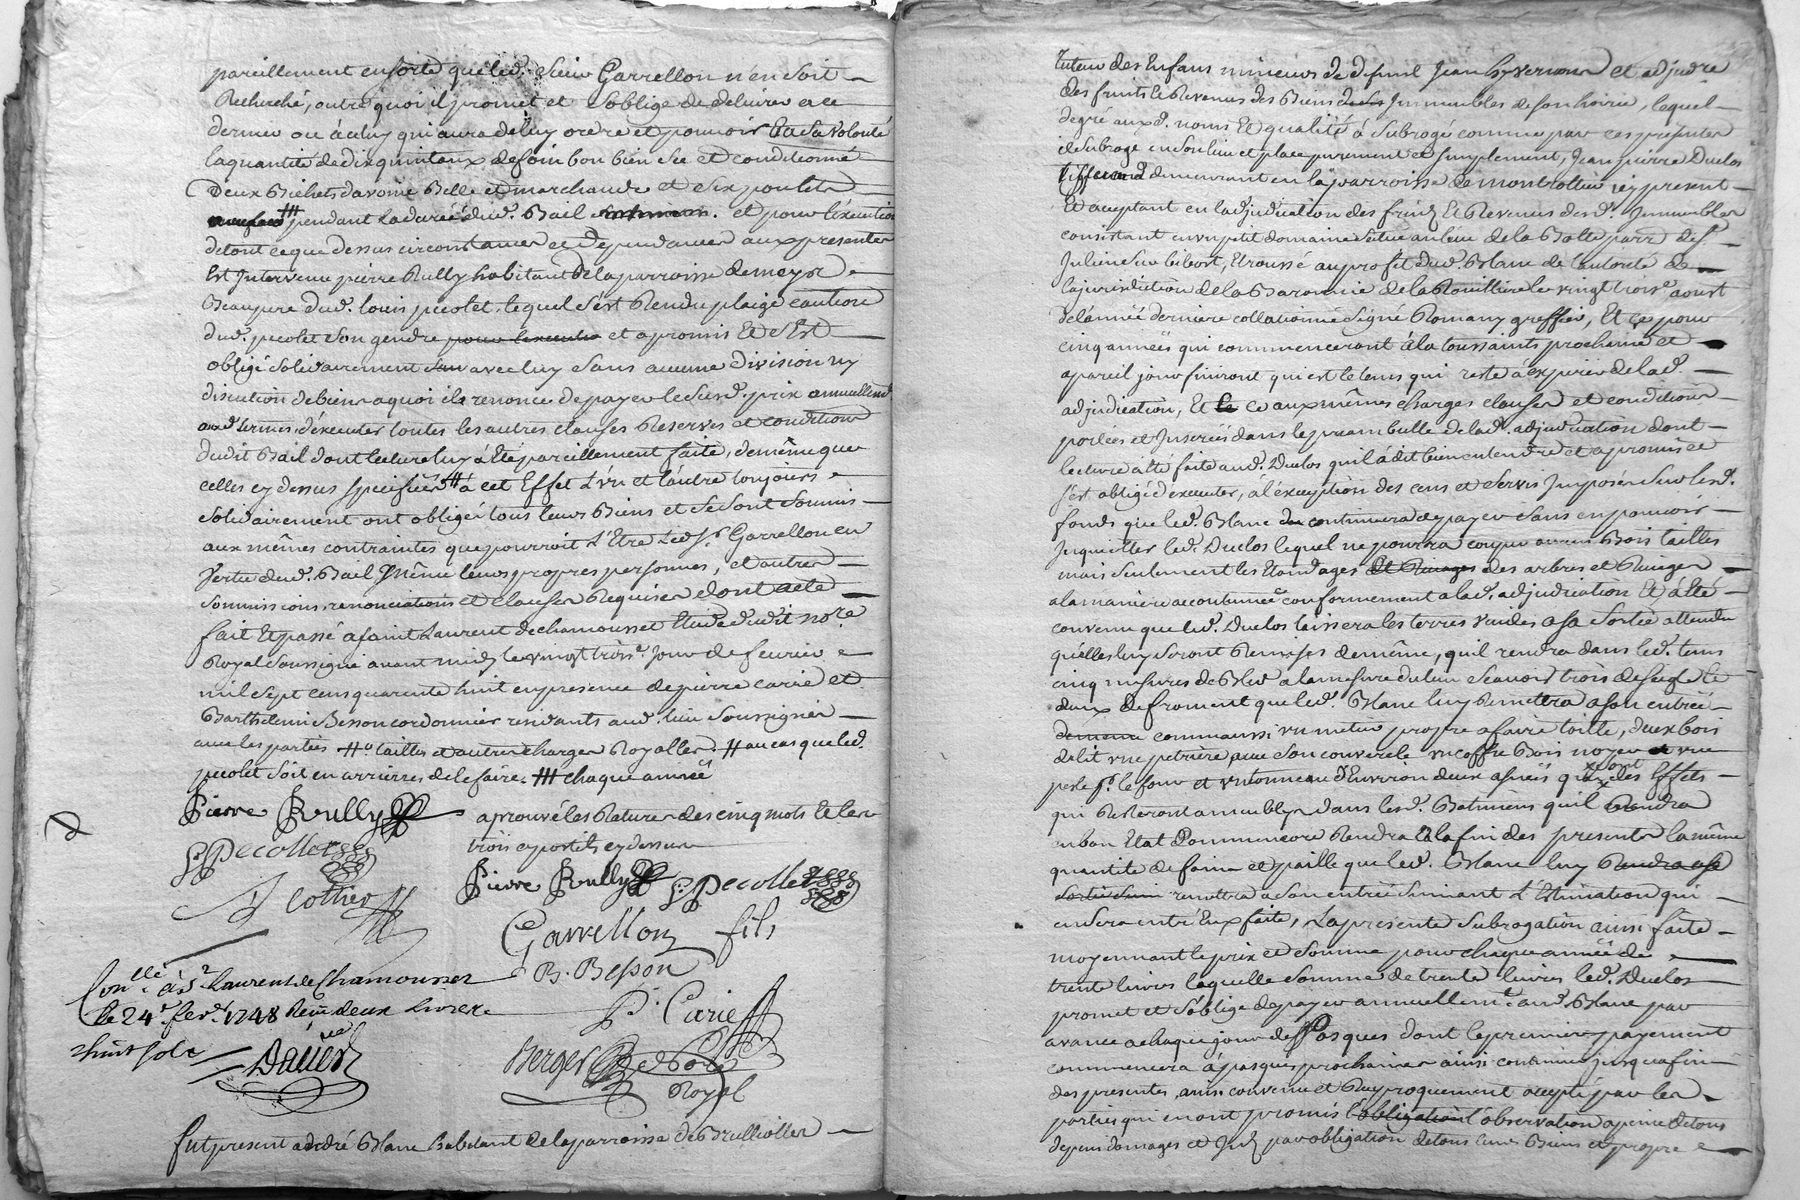 pareillement ensorte que led. Sieur Garrellon n'en soit
Recherché, outre quoi il promet et s'oblige de delivrer a ce
dernier ou à celuy qui aura de luy ordre et pouvoir Et a sa volonté
la quantité de dix quintaux de foin bon bien sec et conditionné
Deux Bichets d'avoine Belle et marchande et six poulets
### pendant La durée dud. Bail et pour l'execution
de tout ce que dessus circonstances et Dependances aux presentes
Est Intervenu pierre Rully habitant de la parroisse de meys
Beaupere dud. louis pecolet, lequel s'est Rendu plaige caution
dud. pecolet son gendre pour l'execution et a promis Et s'Est
obligé solidairement avec luy sans aucune Division ny
discution de biens a quoi ils renonce de payer le susd. prix annuellemt
aud. termes d'executer toutes les autres clauses Reserves et condition
dudit Bail dont lecture luy à Eté pareillement faite, de même que
celles cy dessus specifiées # à cet Effet L'un et l'autre toujours
solidairement ont obligés tous leurs Biens et se sont soumis
aux mêmes contraintes que pourroit L'Etre Led. Sr. Garrellon en
Vertu dud. Bail même leurs propres personnes, et autres
soumissions, renonciations et clauses Requises dont acte
fait Et passé a saint Laurent de chamousset Etude dudit nore.
Royal soussigné avant midy le vingt trois. jour de fevrier
mil sept cens quarente huit en presence de pierre carrié et
Barthelemi Besson cordonnier residants aud. lieu soussignés
avec les parties # tailles et autres charges Royalles. # au cas que led.
pecolet soit en arrierres de le faire. ### chaque année
Pierre Rully
aprouvé les Ratures des cinq mots et les
P Pecollet
trois apostils cy dessus
Cottier
Pierre Rully P Pecollet
Garrellon fils
B. Besson
Conllé. à St. Laurent de Chamousset
le 24e. fevr. 1748 Reçu deux Livres
P. Carié
huit sols
Dauier
Berger No.re
Royal
fut present andré Blanc habitant de la parroisse de Brullioller
tuteur des Enfans mineurs de defunt Jean Guernon et adjudre
des fruits Et Revenus des Biens Immeubles de son hoirie, lequel
degré auxd. noms Et qualité à subrogé comme par ces presentes
il subroge en son lieu et place purement et simplement, Jean pierre Duclos
demeurant en la parroisse de montrottier icy present
Et aceptant en l'adjudication des fruits Et Revenus desd. Immeubles
consistant en un petit domaine situé au lieu de la Botte parr. de St.
Julien sur bibost, Etroussé au profit dud. Blanc de l'autorité de
la jurisdiction de la Baronnie de la Rouilliere le vingt trois. aoust
de l'année derniere collationné signé Romany greffier, Et ce pour
cinq années qui commenceront à la toussaints prochaine et
a pareil jour finiront qui est le tems qui reste à expirer de lad.
adjudication, Et ce aux mêmes charges clauses et conditions
portées et Inserées dans le preambulle de lad. adjudication dont
lecture à été faite aud. Duclos qu'il à dit bien entendre et a promis et
s'est obligé d'executer, a l'exception des cens et servis Imposés sur lesd.
fonds que led. Blanc continuera de payer sans en pouvoir
Inquietter led. Duclos lequel ne pourra couper aucuns Bois taillés
mais seulement les Emondages et Ruages des arbres et Ruiger
a la maniere acoutumée conformement a lad. adjudication Et à Eté
convenu que led. Duclos laissera les terres vuides a sa sortie attendu
qu'elles luy seront Remises de même, qu'il rendra dans led. tems
cinq mesures de Bled a la mesure du lieu sçavoir trois de seigle Et
deux de froment que led. Blanc luy Remettra a son entrée
comm'aussi un metier propre a faire toille, deux bois
de lit une petriere avec son couvercle un coffre Bois noyer et une
perle pr. le four et un tonneau d'Environ deux asnées qui sont des Effets
qui Resteront a meubler dans lesd. Batiments qu'il Rendra
en bon Etat Domm'encore Rendra Et la fin des presentes la même
quantité de foins et paille que led. Blanc luy Rendra a sa
sortie remettra a son entrée suivant L'Estimation qui
en sera entr'Eux faite, La presente subrogation ainsi faite
moyennant le prix et somme pour chaque année de
trente livres laquelle somme de trente livres led. Duclos
promet et s'oblige de payer annuellemt. aud. Blanc par
avance a chaque jour de Pasques dont le premier payement
commencera à pasques prochaines ainsi continuer jusqu'a fin
des presentes, ainsi convenu et Reciproquement accepté par les
parties qui en ont promis l'obligation l'observation a peine de tous
depens domages et Int. par obligation de tous leurs Biens et propre